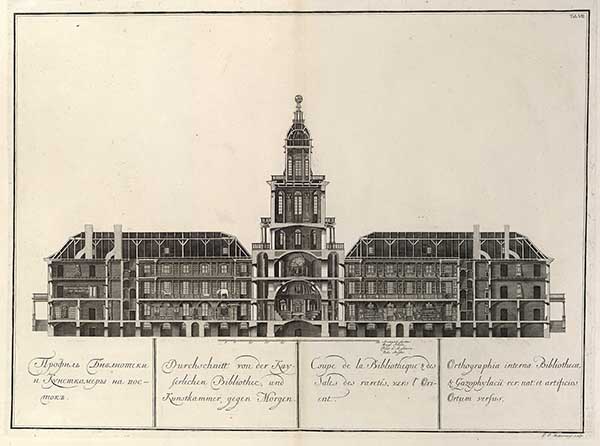 Tab. VII.
Профиль Библиотеки
и Кунсткамеры на вос-
токъ.
Durchschnitt von der Kay-
serlichen Bibliothec, und
Kunstkammer, gegen Morgen.
Coupe de la Bibliotheque & des
Sales des raretés, vers l'Ori-
ent.
Orthographia interna Bibliothecæ
& Gazophylacii rer. nat. et artificios.
Ortum versus.